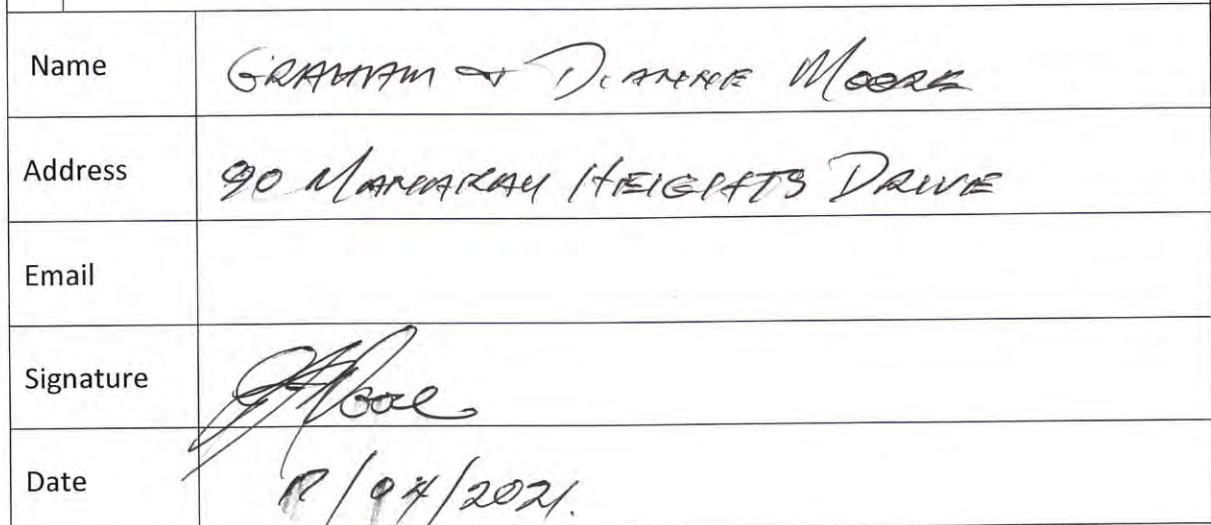 Name GRAHAM & DIANNE MOORE
Address 90 MANDARAH HEIGHTS DRIVE
Email
Signature
Date /04/2021.